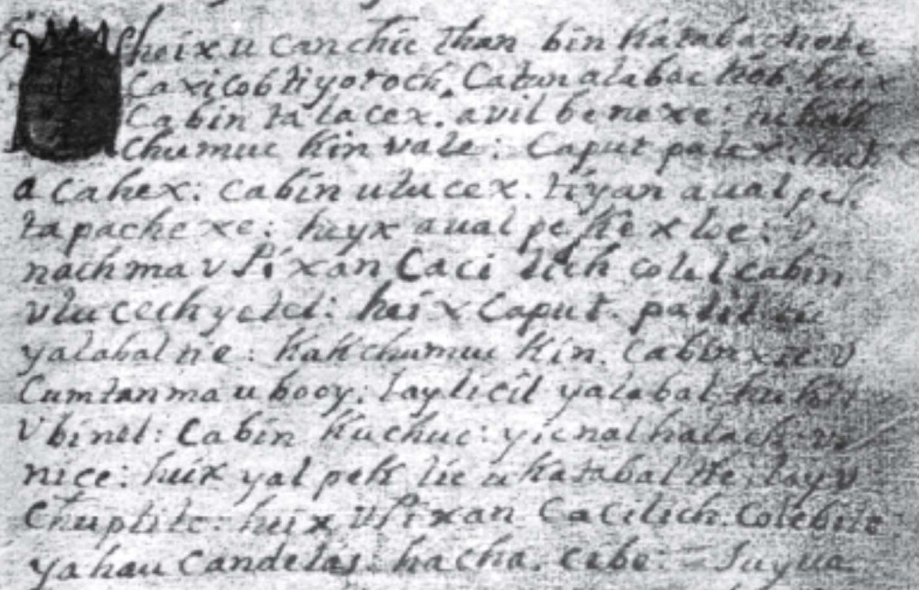 heix u canchic than bin katabac tiobe
Ca xicob ti yotoch. Catun alabac tiob. heix
Cabin talacex. avil benexe: tu kak
chumuc kin vale: Caput palex.
a cahex: cabin ulucex. tiyan aual pek
ta pachexe: heyx aual pekexloe: V
nachma v Pixan Caci lich colel cabin
vlucech yetel: heix Caput. palil cu
yalabal tie: kakchumuc kin. Cabin xic: V
Cumtanma u booy: laylicil yalabal
V binel: Cabin kuchuc: yicnal halach vi
nice: heix yal pek lic u katabal tie: lay v
Chuplile: heix v Pixan Cacilich. Colebile
yahau Candelas. hacha. cebe: = Suyua